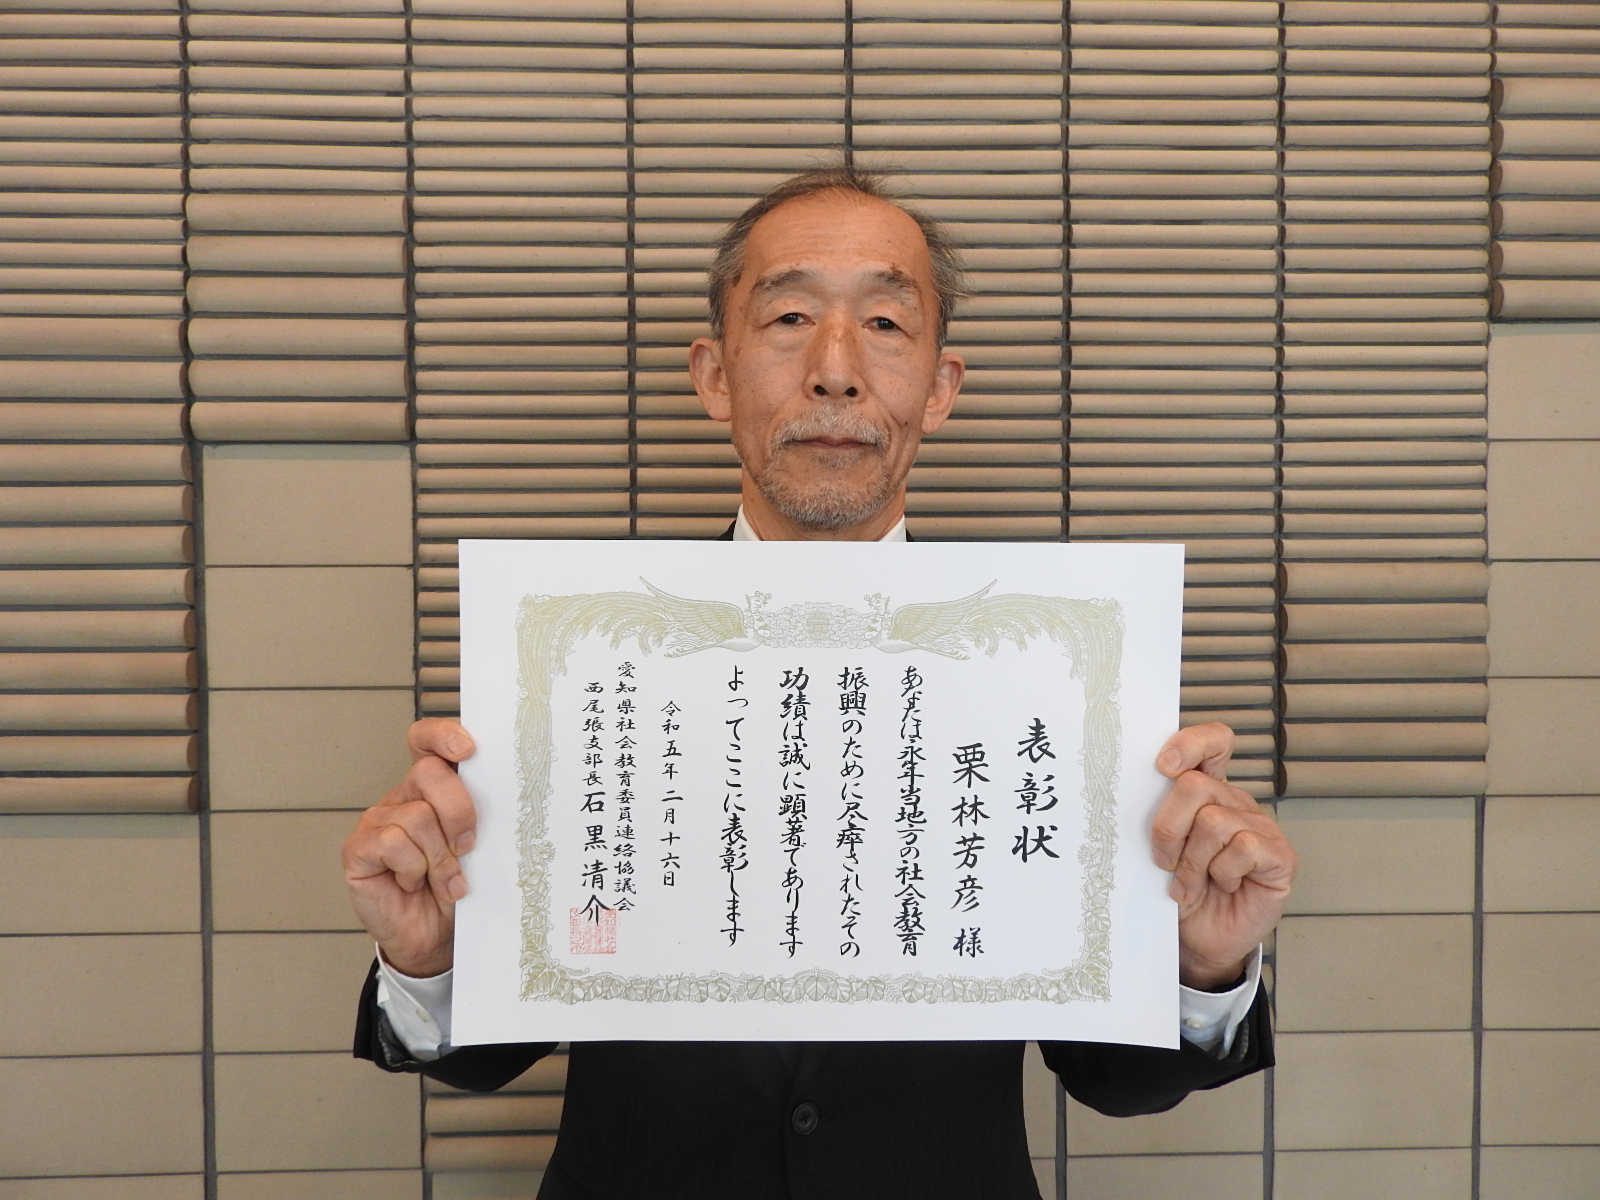 表彰状
栗林芳彦 様
あなたは永年当地方の社会教育
振興のために尽瘁されたその
功績は誠に顕著であります
よってここに表彰します
令和五年二月十六日
愛知県社会教育委員連絡協議会
西尾張支部長 石黒清介